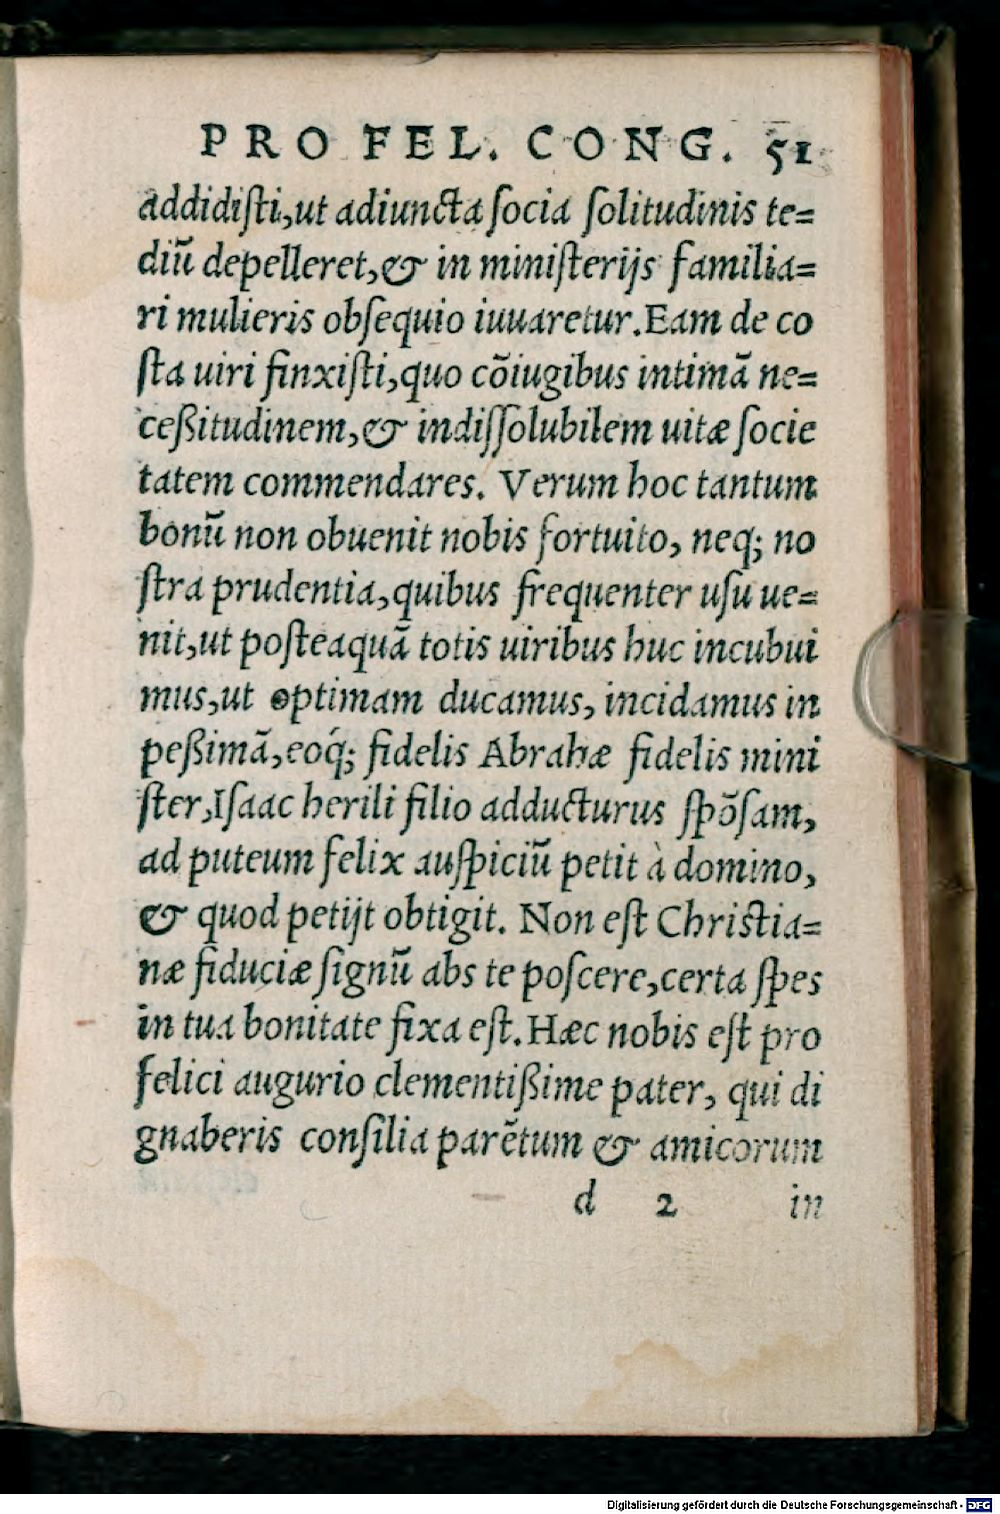 PRO FEL. CONG. 51
addidiſti,ut adiuncta ſocia ſolitudinis te=
diū depelleret,& in miniſterijs familia=
ri mulieris obſequio iuuaretur.Eam de co
ſta uiri finxiſti,quo cōiugibus intimā ne=
ceßitudinem,& indiſſolubilem uitæ ſocie
tatem commendares. Verum hoc tantum
bonū non obuenit nobis fortuito, neq; no
ſtra prudentia,quibus frequenter uſu ue=
nit,ut poſteaquā totis uiribus huc incubui
mus,ut optimam ducamus, incidamus in
peßimā,eoq́; fidelis Abrahæ fidelis mini
ſter,Iſaac herili filio adducturus ſpōſam,
ad puteum felix auſpiciū petit à domino,
& quod petijt obtigit. Non eſt Chriſtia=
næ fiduciæ ſignū abs te poſcere,certa ſpes
in tua bonitate fixa eſt.Hæc nobis eſt pro
felici augurio clementißime pater, qui di
gnaberis conſilia parētum & amicorum
d 2 in
Digitalisierung gefördert durch die Deutsche Forschungsgemeinschaft - DFG